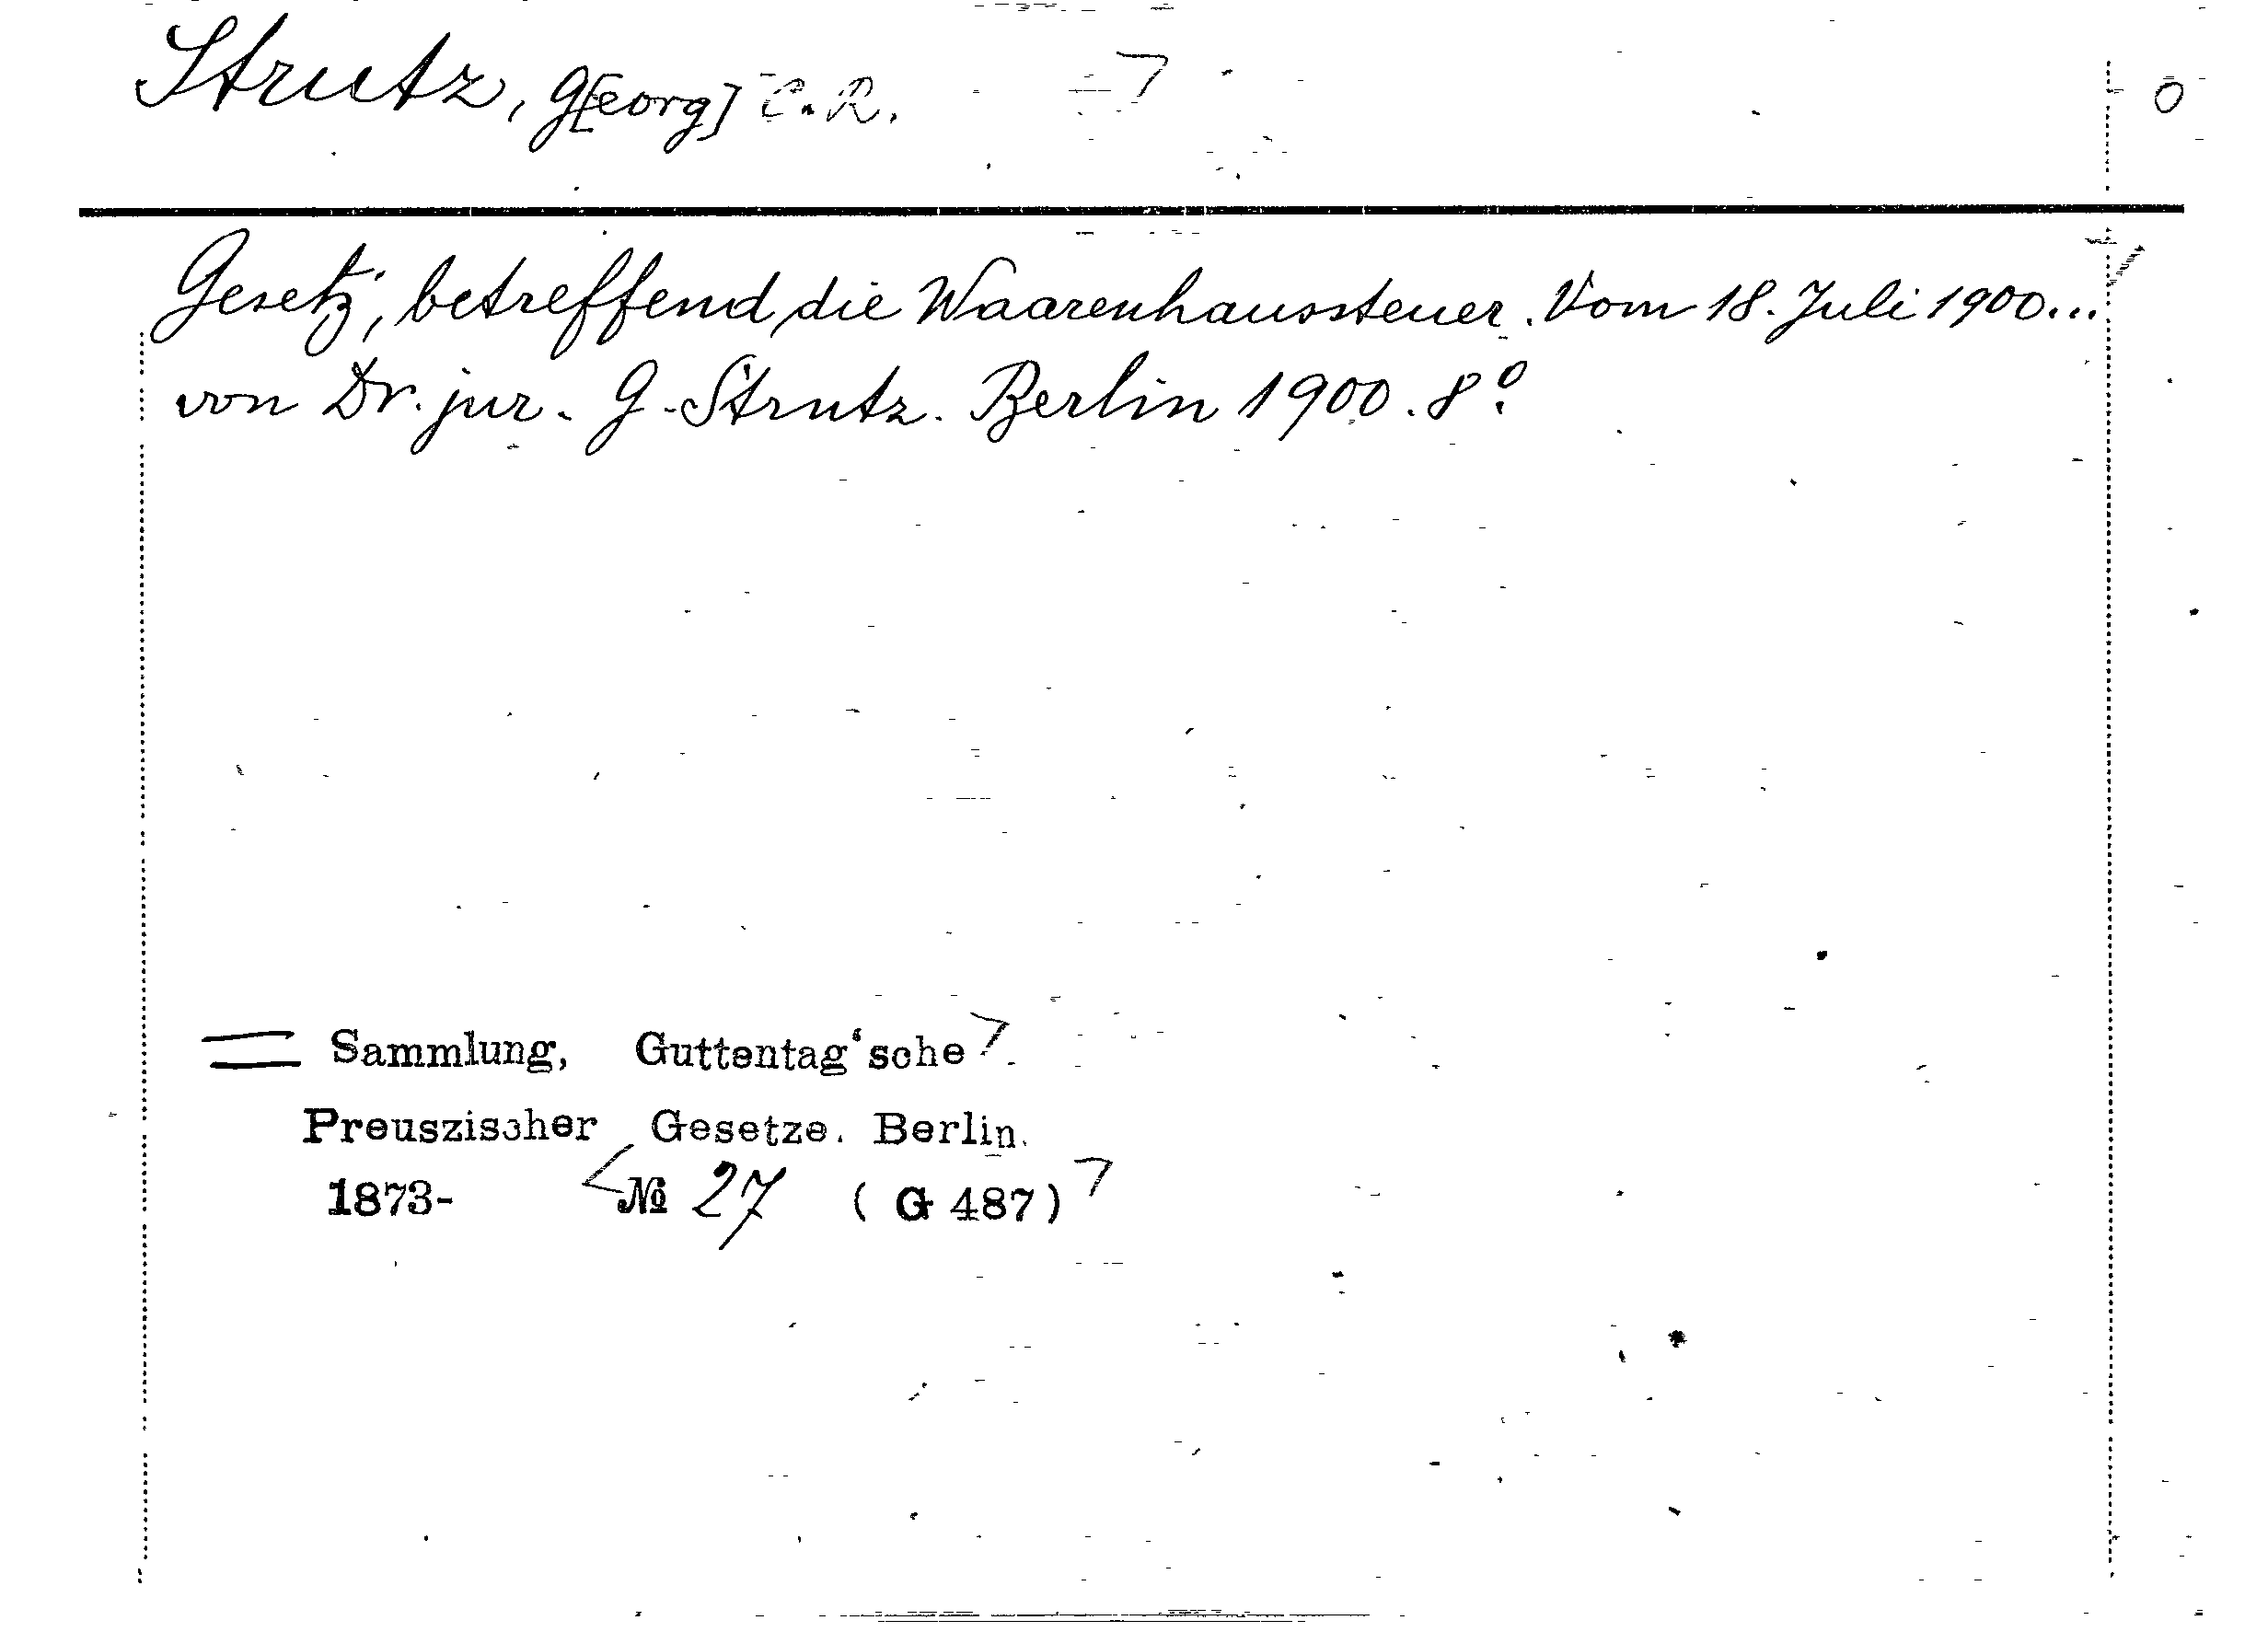 Strutz, G[eorg] C.R. 0
Gesetz, betreffend die Waarenhaussteuer. Vom 18. Juli 1900...
von Dr. jur. G. Strutz. Berlin 1900. 8º
= Sammlung, Guttentag'sche
Preuszischer Gesetze. Berlin.
1873- № 27 (G 487)